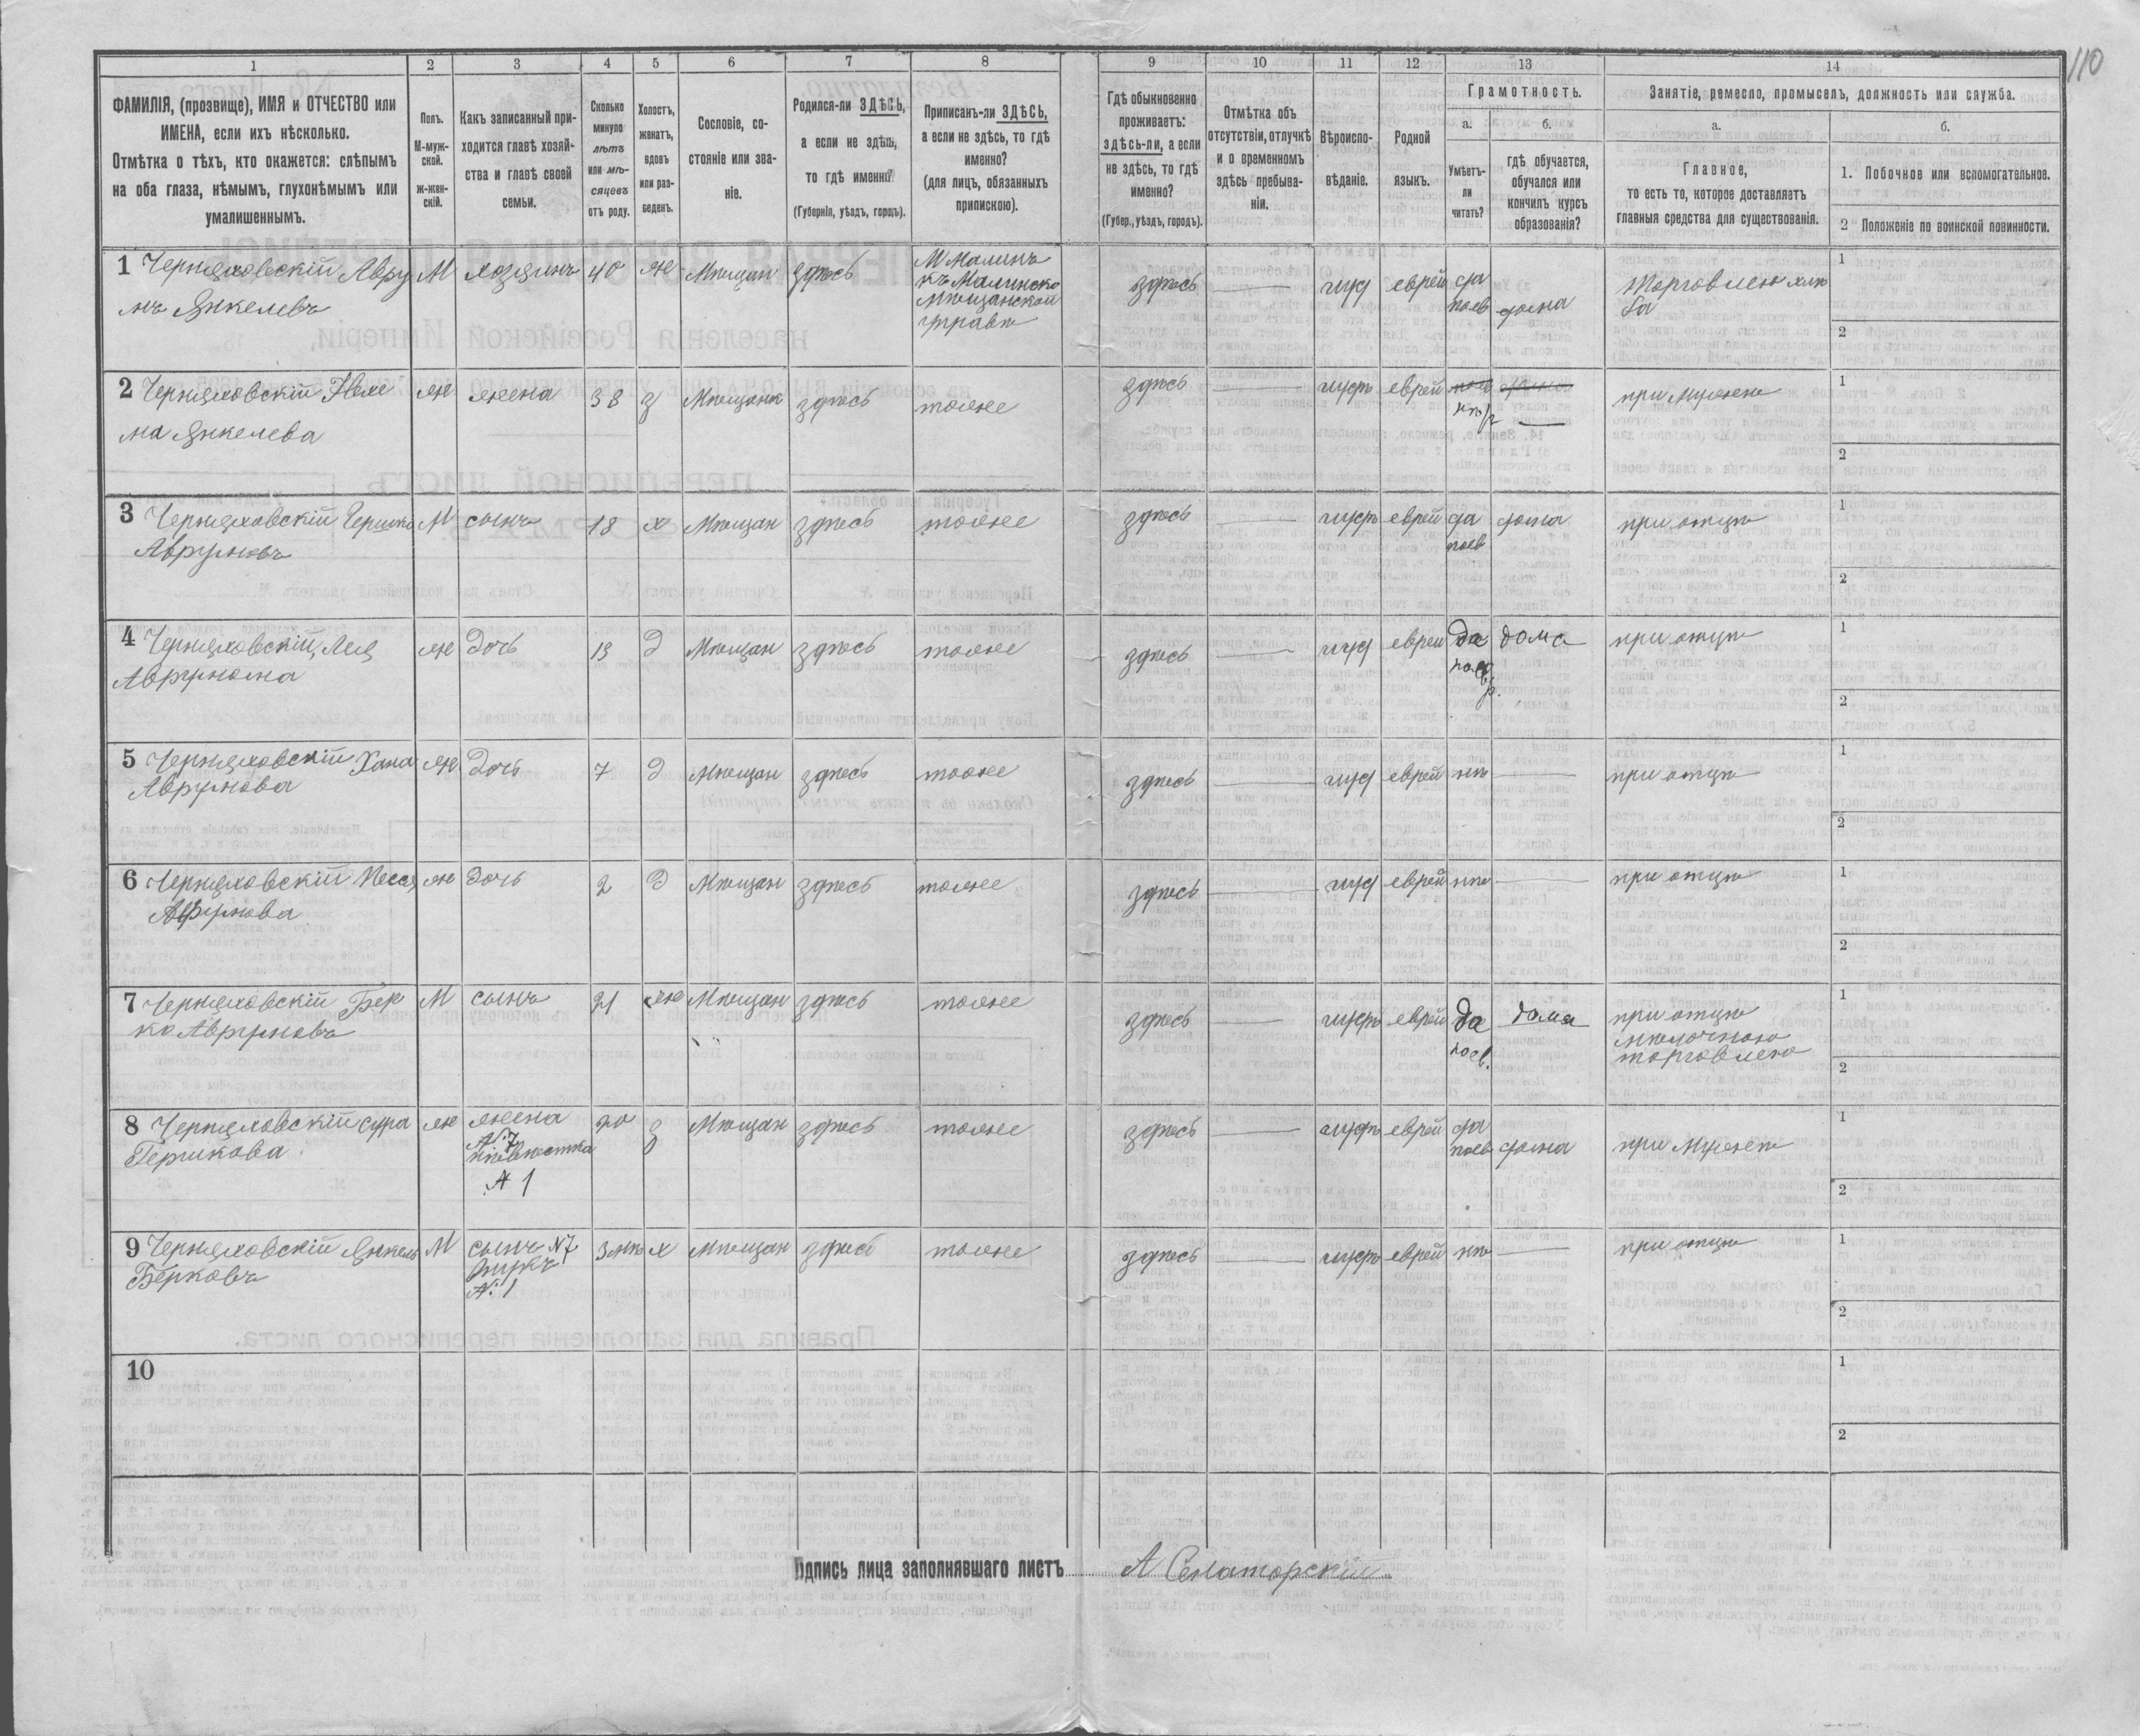 110
1 2 3 4 5 6 7 8 9 10 11 12 13 14
ФАМИЛІЯ, (прозвище), ИМЯ и ОТЧЕСТВО или
ИМЕНА, если ихъ нѣсколько.
Отмѣтка о тѣхъ, кто окажется: слѣпымъ
на оба глаза, нѣмымъ, глухонѣмымъ или
умалишеннымъ.
Полъ.
М-муж-
ской.
ж-жен-
скій.
Какъ записанный при-
ходится главѣ хозяй-
ства и главѣ своей
семьи.
Сколько
минуло
лѣтъ
или мѣ-
сяцевъ
отъ роду.
Холостъ,
женатъ,
вдовъ
или раз-
веденъ.
Сословіе, со-
стояніе или зва-
ніе.
Родился-ли ЗДѢСЬ,
а если не здѣсь,
то гдѣ именно?
(Губернія, уѣздъ, городъ).
Приписанъ-ли ЗДѢСЬ,
а если не здѣсь, то гдѣ
именно?
(для лицъ, обязанныхъ
припискою).
Гдѣ обыкновенно
проживаетъ:
здѣсь-ли, а если
не здѣсь, то гдѣ
именно?
(Губер., уѣздъ, городъ).
Отмѣтка объ
отсутствіи, отлучкѣ
и о временномъ
здѣсь пребыва-
ніи.
Вѣроиспо-
вѣданіе.
Родной
языкъ.
Грамотность.
а.
Умѣетъ-
ли
читать?
б.
гдѣ обучается,
обучался или
кончилъ курсъ
образованія?
Занятіе, ремесло, промыселъ, должность или служба.
а.
Главное,
то есть то, которое доставляетъ
главныя средства для существованія.
б.
1. Побочное или вспомогательное.
2 Положеніе по воинской повинности.
1 Черняховскій Авру М хозяинъ 40 ж Мѣщан здѣсь М Малинъ здѣсь — іуд еврей да Торговлею хлѣ 1
нъ Янкелевъ къ Малинско поев дома ба
мѣщанской
управѣ 2
2 Черняховскій Нехе ж жена 38 з Мѣщанк здѣсь тоже здѣсь — іудѣ еврей при мужѣ 1
ма Янкелева нѣт — 2
3 Черняховскій Гершко М сынъ 18 х Мѣщан здѣсь тоже здѣсь — іудѣ еврей да дома при отцѣ 1
Аврумовъ поев 2
4 Черняховскій Лея ж Дочь 13 Д Мѣщан здѣсь тоже здѣсь — іуд еврей Да дома при отцѣ 1
Аврумова поев. 2
5 Черняховскій Хана ж Дочь 7 Д Мѣщан здѣсь тоже здѣсь — іуд еврей нѣ — при отцѣ 1
Аврумова 2
6 Черняховскій Песся ж Дочь 2 Д Мѣщан здѣсь тоже здѣсь — іуд еврей нѣ — при отцѣ 1
Аврумова 2
7 Черняховскій Бер М сынъ 21 же Мѣщан здѣсь тоже здѣсь — іудѣ еврей Да дома при отцѣ 1
ко Аврумовъ поев. мѣлочною
торговлею 2
8 Черняховскій Сура ж жена 20 з Мѣщан здѣсь тоже здѣсь — іудѣ еврей да 1
Гершкова №7 невѣстка поев дома при мужѣ
№ 1 2
9 Черняховскій Янкель М сынъ №7 3 мѣ х Мѣщан здѣсь тоже здѣсь — іудѣ еврей нѣ — при отцѣ 1
Берковъ внукъ
№ 1 2
10 1
2
Подпись лица заполнявшаго листъ А Сенаторскій